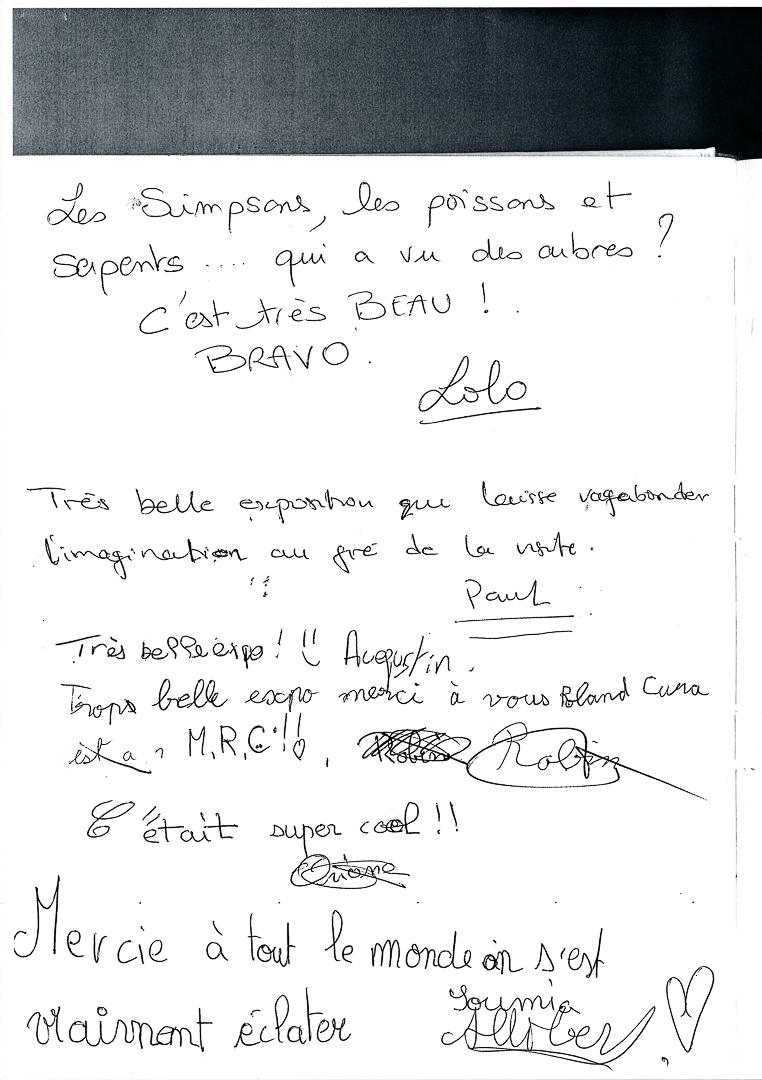 Les Simpsons, les poissons et
serpents .... qui a vu des aubres ?
C'est très BEAU !
BRAVO.
Lolo
Très belle exposition qui laisse vagabonder
l'imagination au gré de la visite.
Paul
Très belle expo ! Augustin.
Trops belle expo merci à vous Bland Cuna
est a M.R.C !!
Robin
Robin
C'était super cool !!
Oriane
Mercie à tout le monde on s'est
vraimnent éclater
Soumia